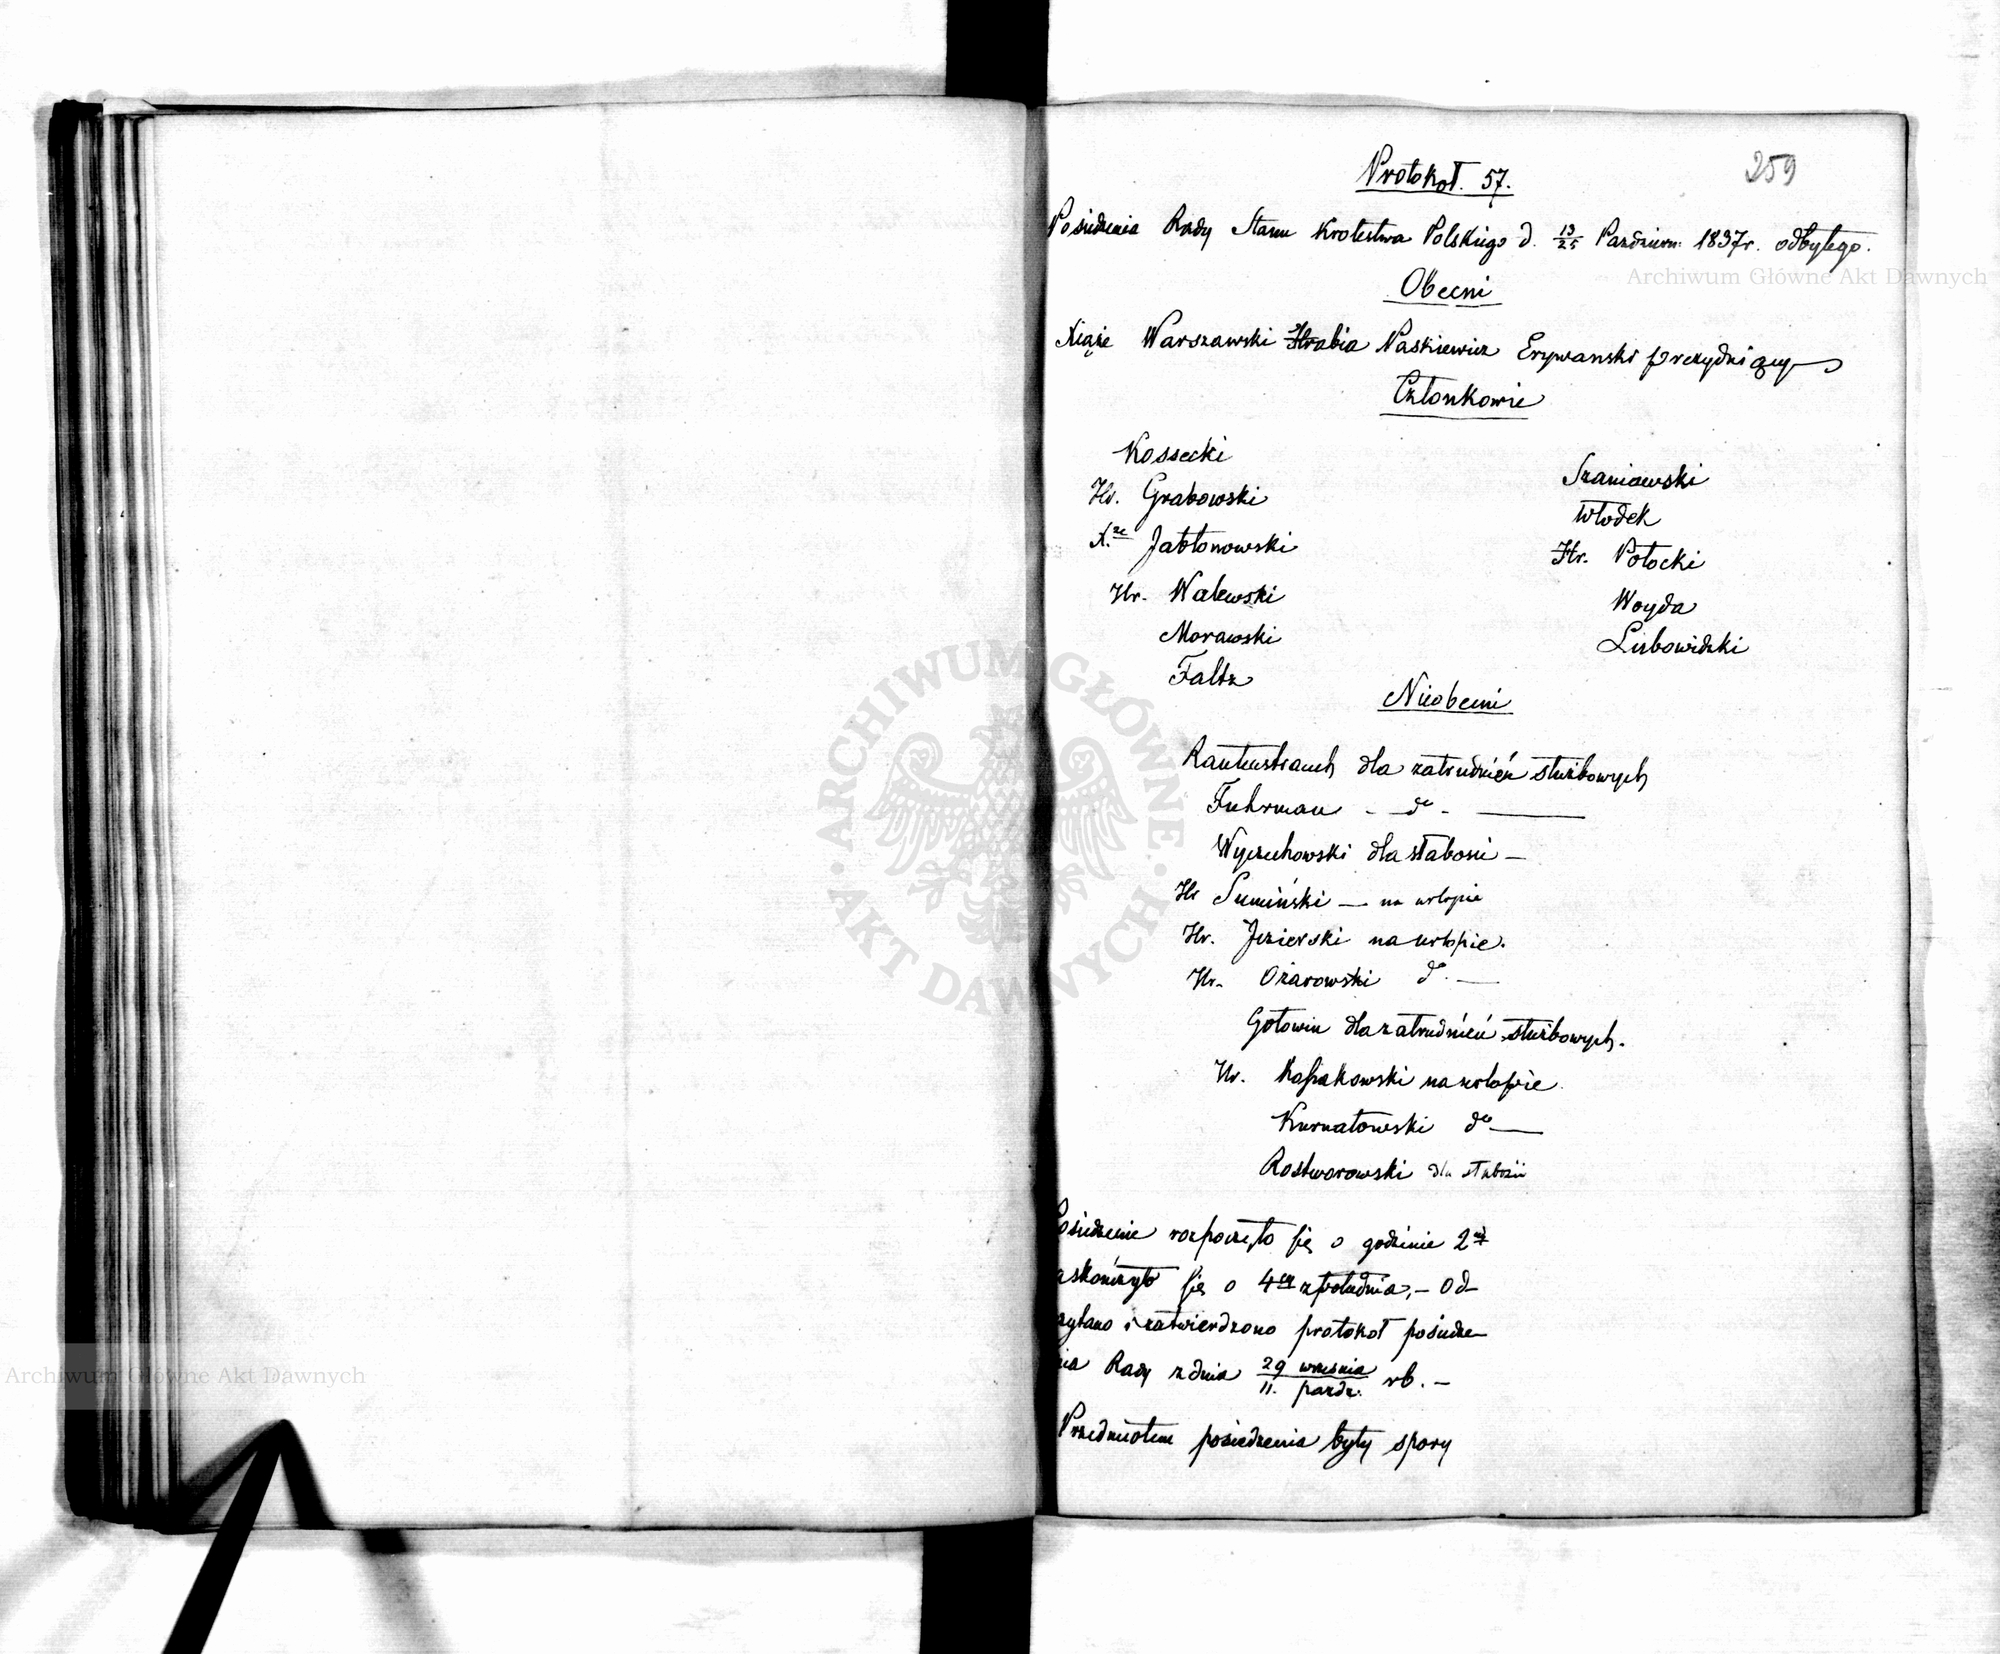 259
Protokoł. 57.
Posiedzenia Rady Stanu Krolestwa Polskiego d. 13/25 Październ: 1837r. odbytego.
Archiwum Główne Akt Dawnych
Obecni
Xiąże Warszawski Hrabia Paskiewicz Erywanski prezydujący
Członkowie
Kossecki
Hr. Grabowski
X.że Jabłonowski
Hr. Walewski
Morawski
Faltz
Szaniawski
Włodek
Hr. Potocki
Woyda
Lubowidzki
Nieobecni
Rautenstrauch dla zatrudnień służbowych
Fuhrman - do -
Wyczechowski dla słabości -
Hr Sumiński - na urlopie
Hr. Jezierski na urlopie.
Hr. Ożarowski do. -
Gołowin dla zatrudnień służbowych.
Hr. Kossakowski na urlopie
Kurnatowski do -
Rostworowski dla słabości
Posiedzenie rozpoczęło się o godzinie 2ej
askończyło się o 4ej z południa, - Od-
zytano i zatwierdzono protokoł posiedze-
nia Rady z dnia 29 września/11. paźdz. rb. -
Przedmiotem posiedzenia były spory
ARCHIWUM GŁÓWNE AKT DAWNYCH
Archiwum Główne Akt Dawnych